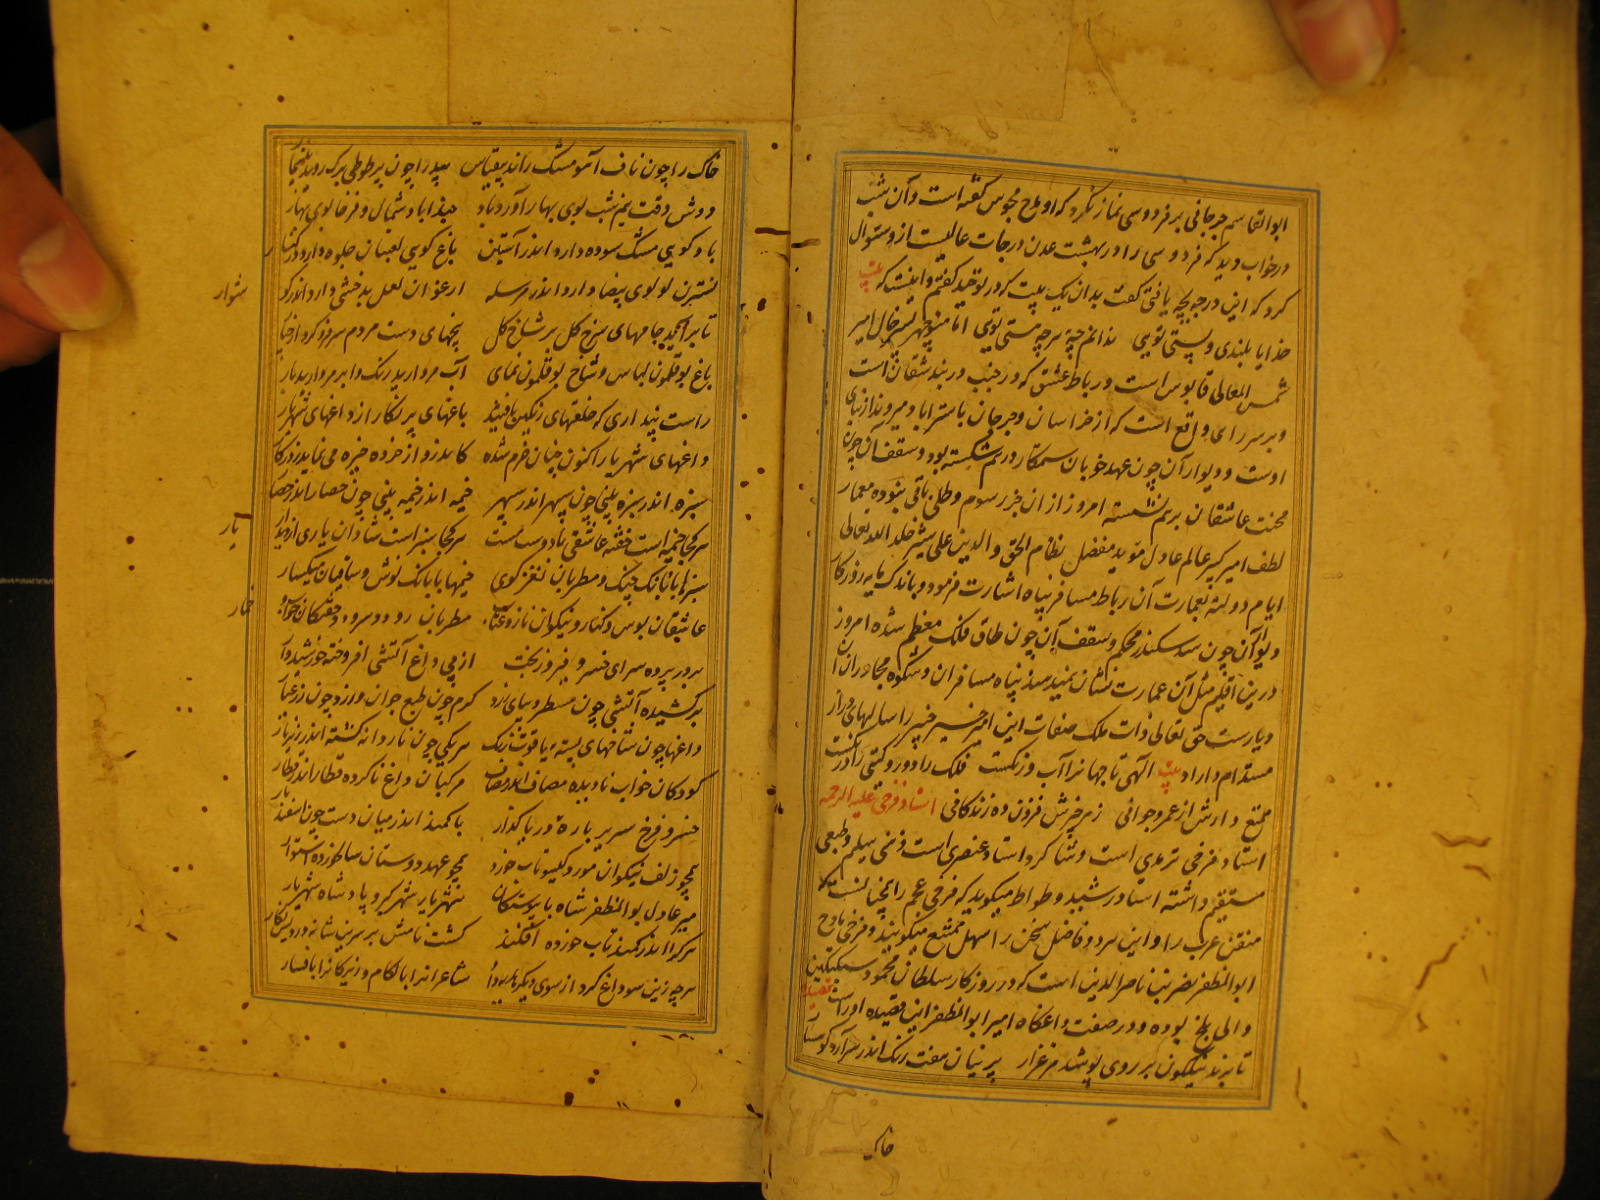 ابوالقاسم جرجانی بر فردوسی نماز نکرد که او مدح مجوس گفته است و آن شب
در خواب دید که فردوسی را در بهشت عدن درجات عالیست از وی سئوال
کرد که این درجه بچه یافتی گفت بدان یک بیت که در توحید گفتم و اینست که بیت
خدایا بلندی و پستی تویی ندانم چه هر چه هستی تویی اما منوچهر بسر خال امیر
شمس المعالی قابوس است و رباط عشق که در جنب دربند شقان است
و بر سر راهی واقع است که از خراسان و جرجان باستراباد میروند از بنای
اوست و دیوار آن چون عهد خوبان ستمکار درهم شکسته بود و سقفان چون
محنت عاشقان برهم نشسته امروز از ان جز رسوم و طللی باقی نبوده معمار
لطف امیر کبیر عالم عادل موید مفضل نظام الحق والدین علی شیر خلد الله تعالی
ایام دولته بعمارت آن رباط مسافر پناه اشارت فرمود و باندک مایه روزگار
دیوار آن چون سد سکندر محکم و سقف آن چون طاق فلک معظم شده امروز
درین اقلیم مثل آن عمارت نشان نمیدهند پناه مسافران و شکوه مجاوران آن
دیارست حق تعالی ذات ملک صفات این امیر خیر را سالهای دراز
مستدام داراد بیت الهی تا جهانرا آب و رنگست فلک را دور و گیتی را درنگست
ممتع دارش از عمر و جوانی ز هر خیرش فزون ده زندگانی استاد فرخی علیه الرحمه
استاد فرخی ترمدی است و شاگرد استاد عنصری است ذهنی سلیم و طبعی
مستقیم داشته استاد رشید وطواط میگوید که فرخی عجم را همچنانست که
متنبی عرب را و این هر دو فاضل سخن را سهل ممتنع میگویند و فرخی مادح
ابوالمظفر نصر بن ناصرالدین است که در روزگار سلطان محمود سبکتکین
والی بلخ بوده و در صفت داغگاه امیر ابوالمظفر این قصیده او راست قصیده
تا پرند نیلگون بر روی پوشد مرغزار پرنیان هفت رنگ اندر سر آرد کوهسار
خاک
خاک را چون ناف آهو مشک زاید بیقیاس بید را چون پر طوطی برگ روید بیشمار
دوش وقت نیم شب بوی بهار آورد باد حبذا باد شمال و فرخا بوی بهار
باد گویی مشک سوده دارد اندر آستین باغ گویی لعبتان جلوه دارد در کنار
نسترن لولوی بیضا دارد اندر مرسله ارغوان لعل بدخشی دارد اندر گوشوار
تا برآمد جامهای سرخ گل بر شاخ گل پنجهای دست مردم سر فرو کرد از چنار
باغ بوقلمون لباس و شاخ بوقلمون نمای آب مروارید رنگ و ابر مروارید بار
راست پنداری که خلعتهای رنگین یافتند باغهای پر نگار از داغهای شهریار
داغهای شهریار اکنون چنان خرم شده کاندرو از خرده خیره می نماید روزگار
سبزه اندر سبزه بینی چون سپهر اندر سپهر خیمه اندر خیمه بینی چون حصار اندر حصار
هر کجا خیمه است خفته عاشقی با دوست مست هر کجا سبزه است شادان یاری از دیدار
یار
سبزها با بانگ چنگ و مطربان نغزگوی خیمها با بانگ نوش و ساقیان میگسار
عاشقان بوس و کنار و نیکوان ناز و عتاب مطربان رود و سرود و خفتگان خواب و
خمار
بر در پرده سرای خسرو فیروز بخت از پی داغ آتشی افروخته خورشیدوار
برکشیده آتشی چون مطرد دیبای زرد گرم چون طبع جوان و زرد چون زر عیار
داغها چون شاخهای بسد یاقوت رنگ هر یکی چون ناردانه گشته اندر زیر نار
کودکان خواب نادیده مصاف اندر مصاف مرکبان داغ ناکرده قطار اندر قطار
خسرو فرخ سیر بر باره دریا گذار با کمند اندر میان دشت چون اسفندیار
همچو زلف نیکوان مورد گیسو تاب خورد همچو عهد دوستان سالخورده استوار
میر عادل بوالمظفر شاه با پیوستگان شهریار شهرگیر و پادشاه شهریار
هر کرا اندر کمند تاب خورده افکند گشت نامش بر سرین و شانه و رویش نگار
هر چه زین سو داغ کرد از سوی دیگر هدیه داد شاعرانرا با لگام و زیرکانرا با فسار